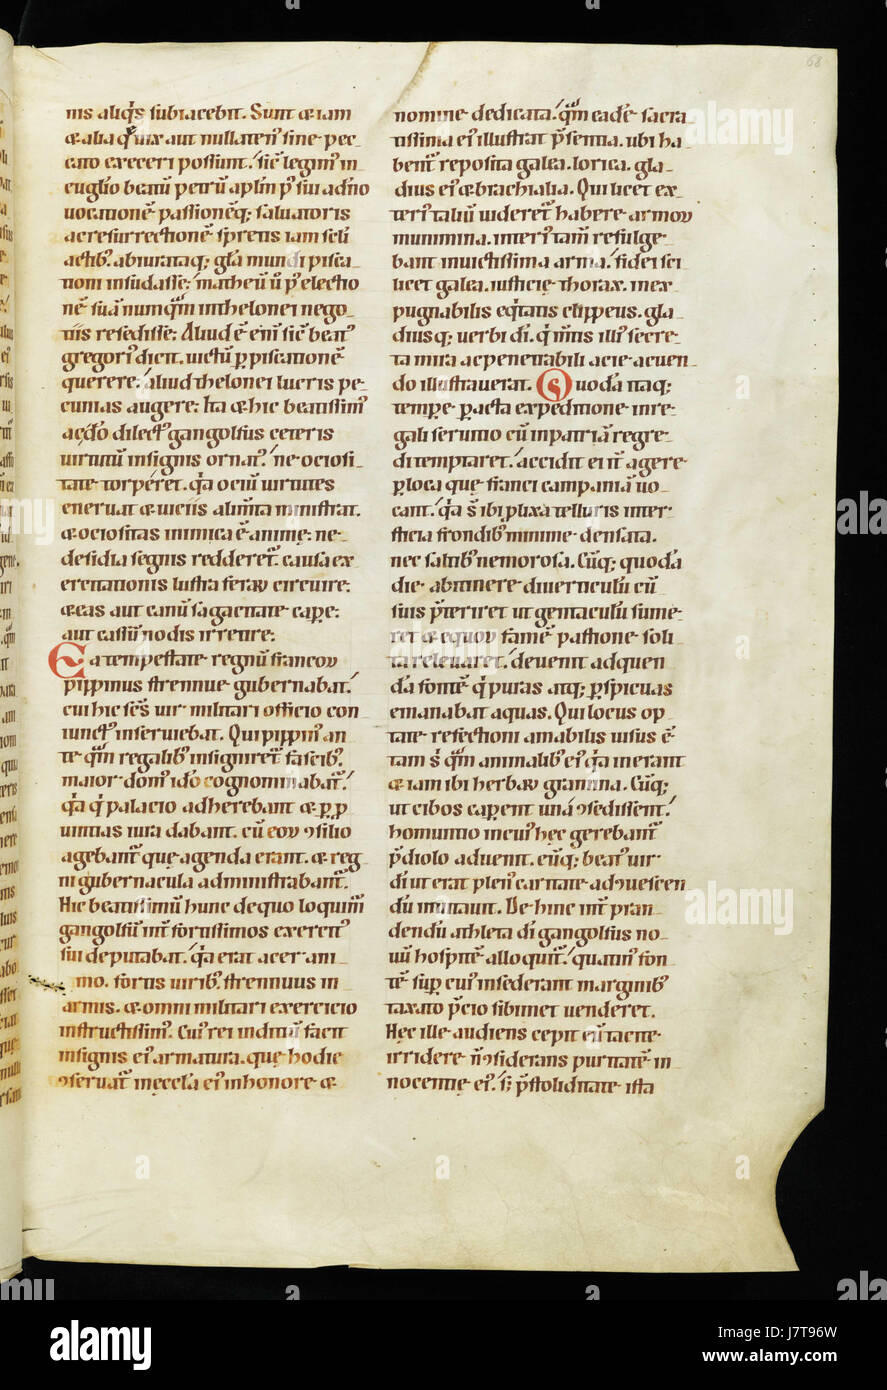 68
nis aliq̃s subiacebit. Sunt & iam
& alia quix aut nullaten' sine pec-
cato exerceri possunt. sic legim' in
euglio beatũ petrũ aplm p' sui adno
uocationẽ passionẽq; saluatoris
ac resurrectionẽ spretis iam seli
actib' abiuratisq; gla mundi pisca-
tioni insudasse: matheũ ũ p' electio
nẽ suã numq̃m inthelonei nego-
tiis resedisse: Aliud ẽ eni sic beat'
gregori' dicit. uictũ p piscationẽ
querere: aliud thelonei lucris pe-
cunias augere: Ita & hic beatissim'
ac do dilect' gangolfus ceteris
uirtutũ insignis ornat'. ne ociosi-
tate torperet. qa ociũ uirtutes
eneruat & uiciis alimta ministrat.
& ociositas inimica ẽ anime: ne
desidia segnis redderet. causa ex-
ercitationis lustra ferarũ circuire:
& eas aut canũ sagacitate cape:
aut cassiũ nodis irretire:
Ea tempestate regnũ francoꝝ
pippinus strennue gubernabat.
cui hic scs uir militari officio con
iunct' inseruiebat. Qui pippin' an-
te q̃m regalib' insigniret fascib'.
maior dom' ido cognominabat.
qa q' palacio adherebant & p p
uintias iura dabant. cũ eoꝝ ɔsilio
agebant que agenda erant. & reg
ni gubernacula administrabant.
Hic beatissimũ hunc de quo loquim'
gangolfũ int fortissimos exercit'
sui deputabat. qa erat acer ani-
mo. fortis uirib'. strennuus in
armis. & omni militari exercicio
instructissim'. Cui' rei indiciũ facit
insignis ei' armatura. que hodie
ɔseruat in eccla ei' in honore &
nomine dedicata. q̃m eadẽ sacra
tissima ei' illustrat psentia. ubi ha-
bent reposita galea. lorica. gla-
dius ei' & brachialia. Qui licet ex-
teri' taliũ uideret habere armoꝝ
munimina. interi' tam refulge-
bant inuictissima arma. fidei sci
licet galea. iusticie thorax. inex-
pugnabilis eqtatis clippeus. gla-
diusq; uerbi di. q' mtis illi' secre-
ta mira ac penetrabili acie acuen
do illustrauerat. Quodã itaq;
tempe pacta expeditione in re-
gali seruitio cũ in patriã regre-
di temptaret. accidit ei it agere
p loca que franci campaniã uo-
cant. qa s' ibi plixa telluris inter-
sticia frondib' minime densata.
nec saltib' nemorosa. Cũq; quodã
die abitinere diuerticulũ cũ
suis pteriret ut gentaculũ sume-
ret & equoꝝ famẽ pastione soli
ta releuaret. deuenit ad quen
dã fontẽ q' puras atq; pspicuas
emanabat aquas. Qui locus op
tate refectioni amabilis uisus ẽ
tam s' q̃m animalib' ei' qa inerant
& iam ibi herbaꝝ gramina. Cũq;
ut cibos capent unã ɔsedissent.
homuntio incui' hec gerebant
pdiolo aduenit. eũq; beat' uir
di ut erat plen' caritate ad ɔuescen
dũ inuitauit. De hinc int pran
dendũ athleta di gangolfus no
uũ hospitẽ alloquit. quatin' fon
tẽ sup cui' insederant marginib'
taxato pcio sibimet uenderet.
Hec ille audiens cepit eũ tacite
irridere. ñ ɔsiderans puritatẽ in
nocentie ei'. s; p stoliditate ista